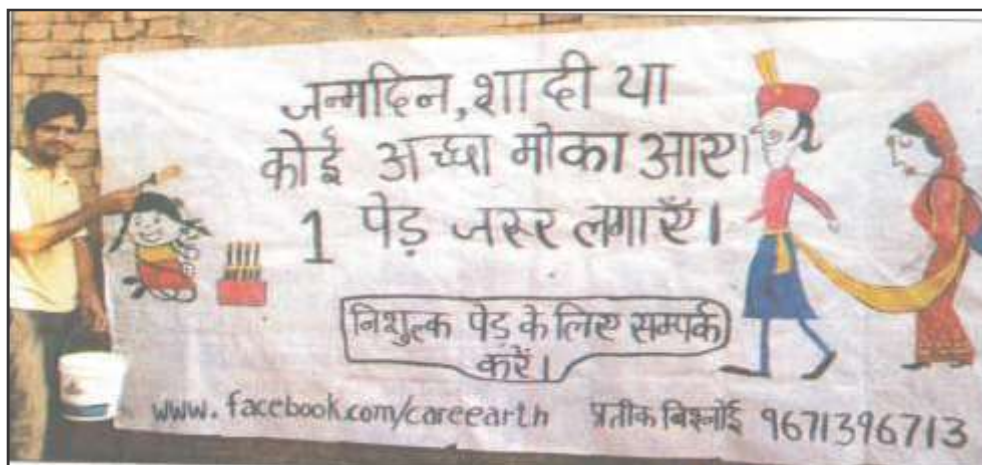 जन्मदिन, शादी या
कोई अच्छा मोका आए।
1 पेड़ जरुर लगाएँ।
निशुल्क पेड़ के लिए सम्पर्क
करें।
www.facebook.com/careearth प्रतीक बिश्नोई 9671396713